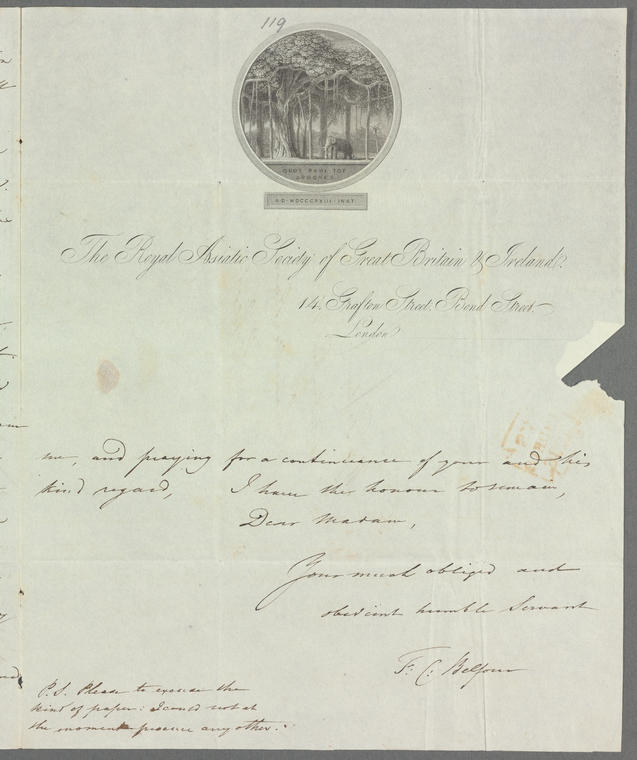 119
QUOT RAMI TOT
ARBORES
A·D·MDCCCXXIII·INST
The Royal Asiatic Society of Great Britain & Ireland.
14, Grafton Street, Bond Street.
London
me, and praying for a continuance of your and his
kind regard, I have the honour to remain,
Dear Madam,
Your much obliged and
obedient humble Servant
F. C. Belfour
P.S. Please to excuse the
kind of paper: I could not at
the moment procure any other.